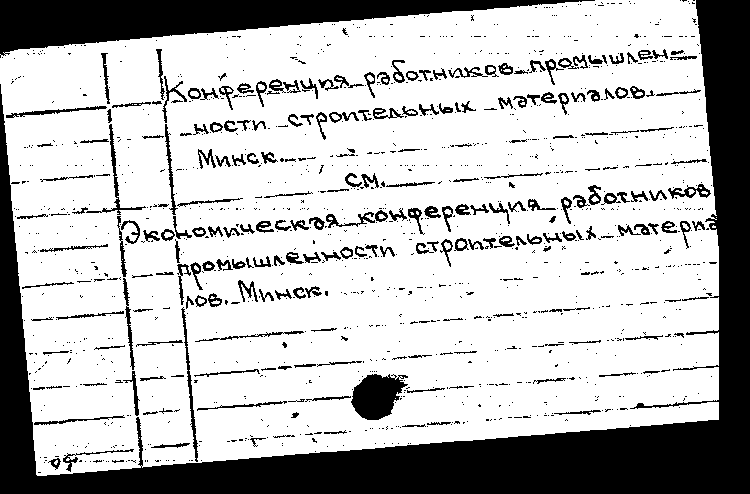 Конференция работников промышлен-
ности строительных материалов.
Минск.
см.
Экономическая конференция работников
промышленности строительных материа
лов. Минск.